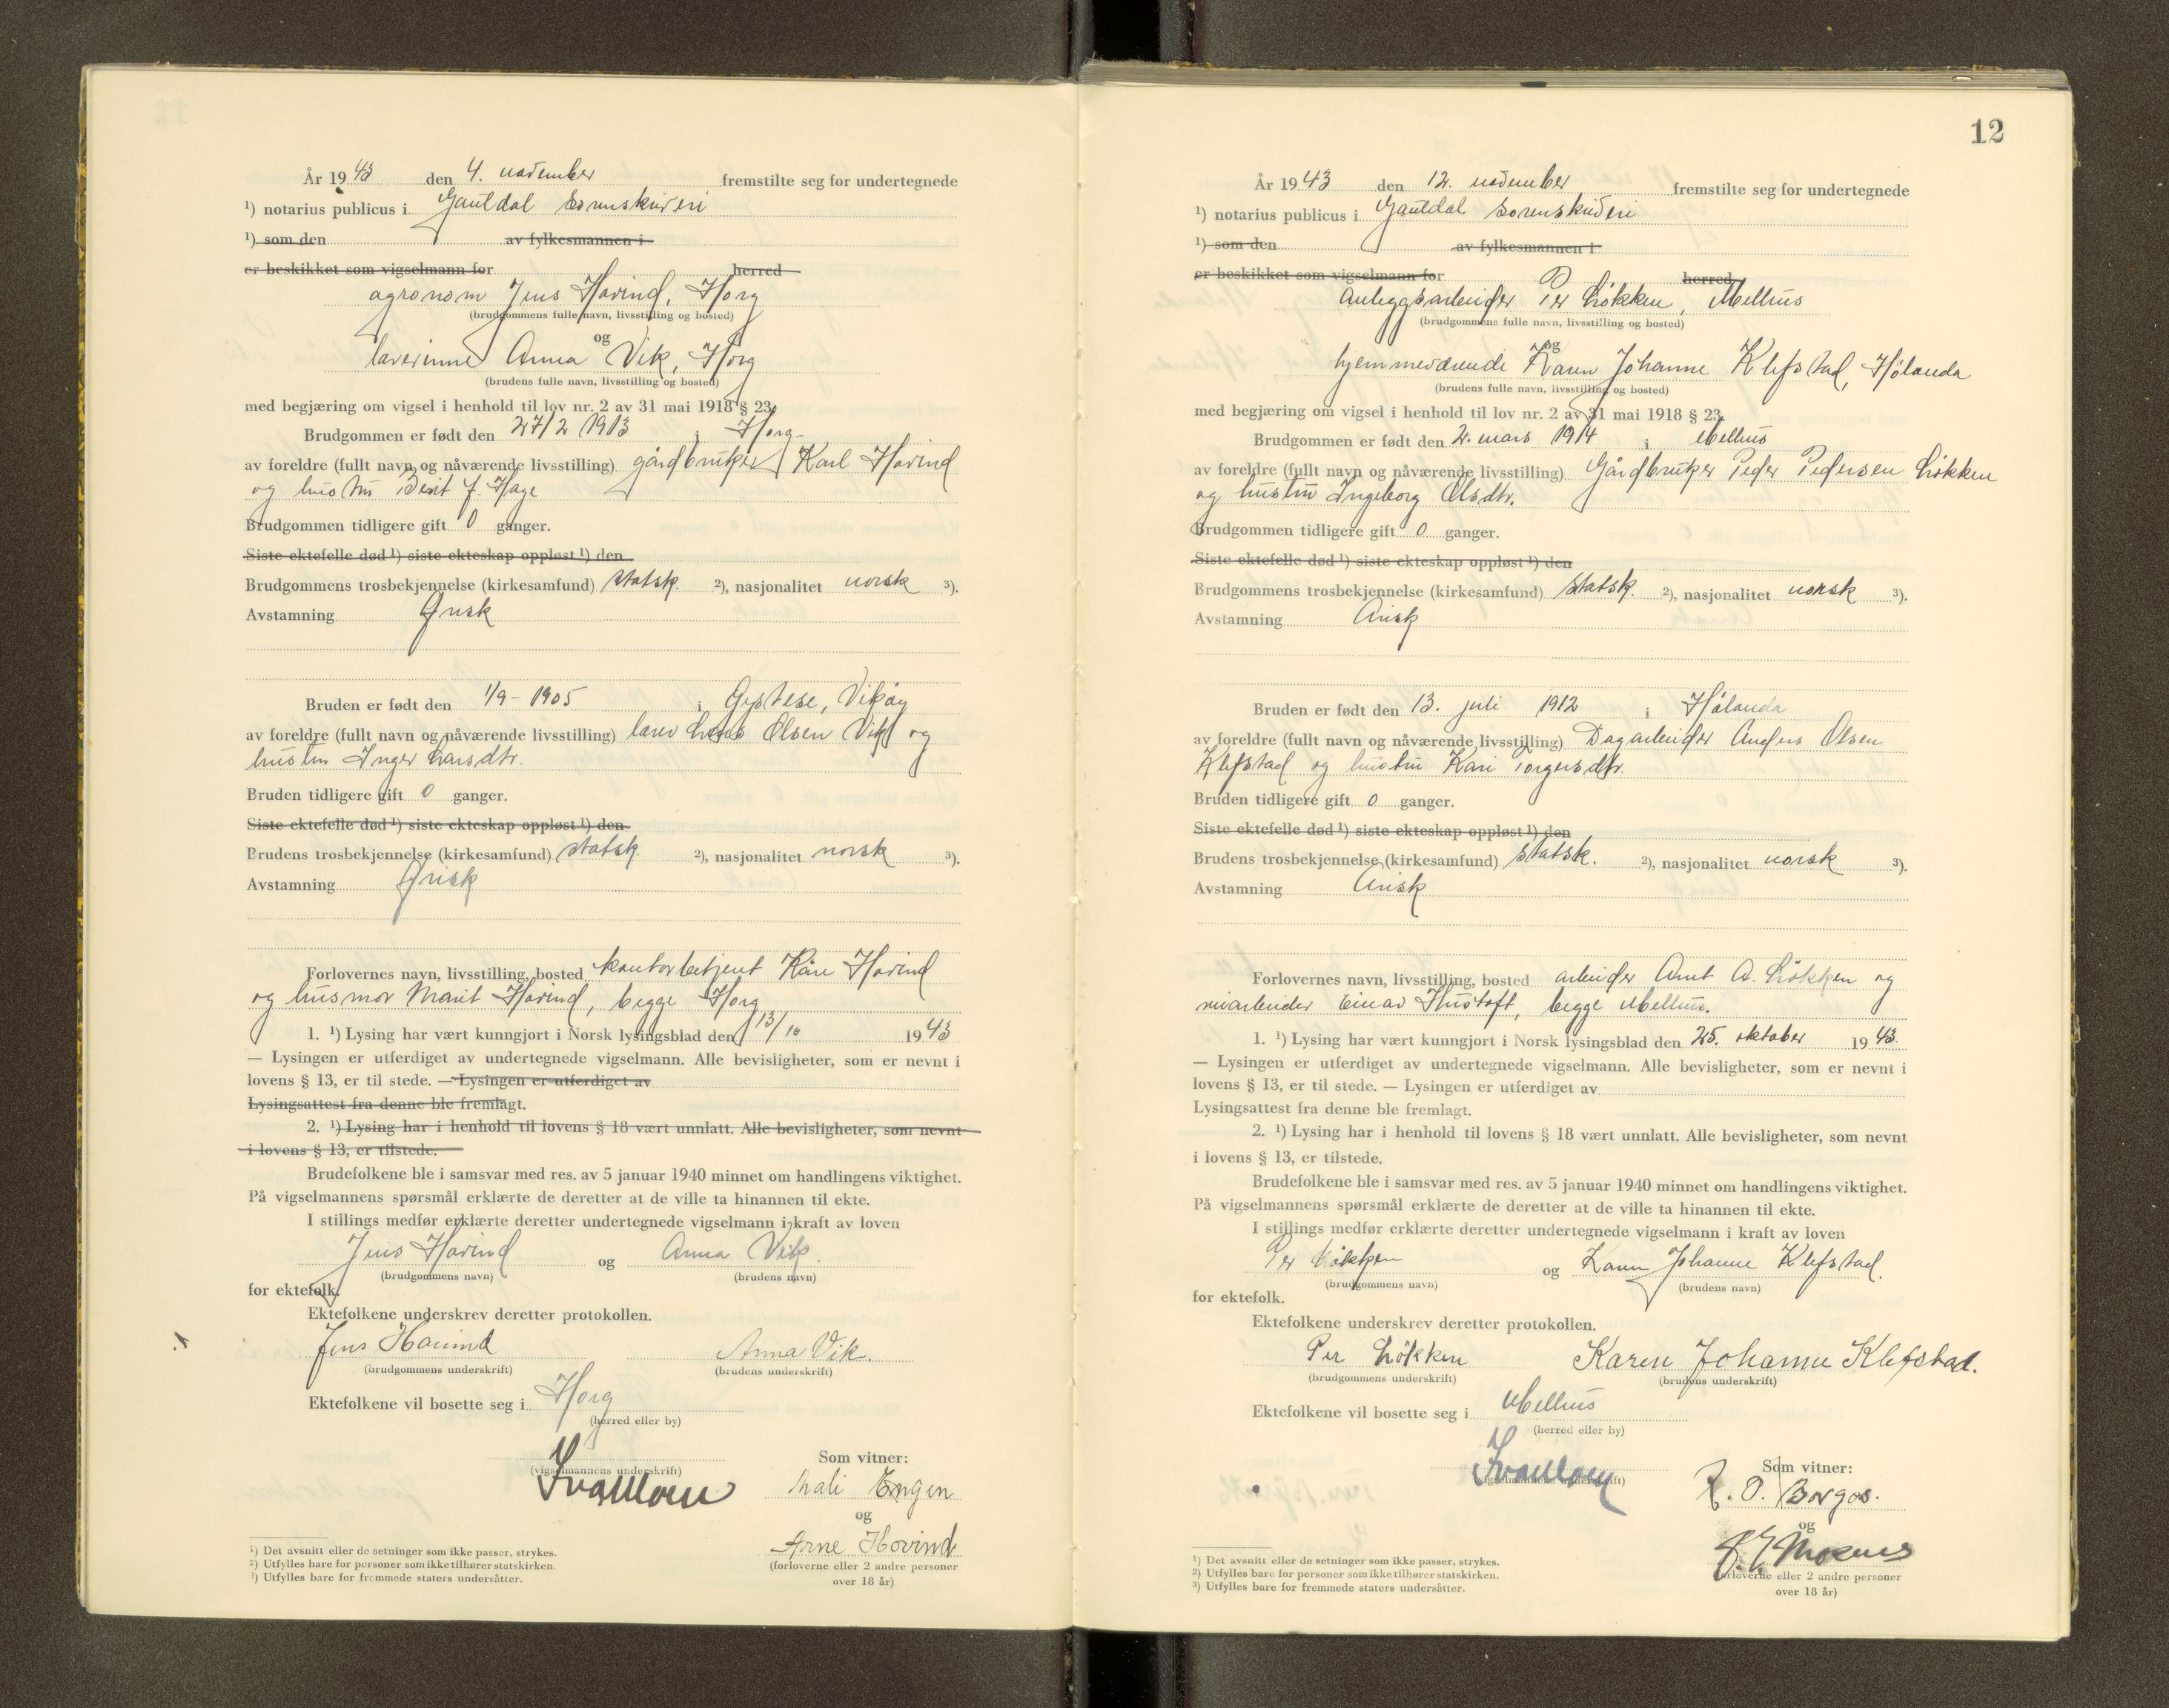 År 1943 den 4. november fremstilte seg for undertegnede
¹) notarius publicus i Gauldal Sorenskriveri
¹) som den av fylkesmannen i
er beskikket som vigselmann for herred
agronom Jens Hovind, Horg
(brudgommens fulle navn, livsstilling og bosted)
og
lærerinne Anna Vik, Horg
(brudens fulle navn, livsstilling og bosted)
med begjæring om vigsel i henhold til lov nr. 2 av 31 mai 1918 § 23.
Brudgommen er født den 27/2 1913 i Horg
av foreldre (fullt navn og nåværende livsstilling) gårdbruker Karl Hovind
og hustru Berit J. Hage
Brudgommen tidligere gift 0 ganger.
Siste ektefelle død ¹) siste ekteskap oppløst ¹) den
Brudgommens trosbekjennelse (kirkesamfund) statsk. ²), nasjonalitet norsk ³).
Avstamning Arisk
Bruden er født den 1/9 - 1905 i Øystese, Vikøy
av foreldre (fullt navn og nåværende livsstilling) lærer Olsen Vik og
hustru Inger Larsdtr.
Bruden tidligere gift 0 ganger.
Siste ektefelle død ¹) siste ekteskap oppløst ¹) den
Brudens trosbekjennelse (kirkesamfund) statsk. ²), nasjonalitet norsk ³).
Avstamning Arisk
Forlovernes navn, livsstilling, bosted kontorbetjent Kåre Hovind
og husmor Marit Hovind, begge Horg
1. ¹) Lysing har vært kunngjort i Norsk lysingsblad den 13/10 1943
— Lysingen er utferdiget av undertegnede vigselmann. Alle bevisligheter, som er nevnt i
lovens § 13, er til stede. — Lysingen er utferdiget av
Lysingsattest fra denne ble fremlagt.
2. ¹) Lysing har i henhold til lovens § 18 vært unnlatt. Alle bevisligheter, som nevnt
i lovens § 13, er tilstede.
Brudefolkene ble i samsvar med res. av 5 januar 1940 minnet om handlingens viktighet.
På vigselmannens spørsmål erklærte de deretter at de ville ta hinannen til ekte.
I stillings medfør erklærte deretter undertegnede vigselmann i kraft av loven
Jens Hovind og Anna Vik.
(brudgommens navn) (brudens navn)
for ektefolk.
Ektefolkene underskrev deretter protokollen.
Jens Hovind Anna Vik.
(brudgommens underskrift) (brudens underskrift)
Ektefolkene vil bosette seg i Horg
(herred eller by)
Som vitner:
(vigselmannens underskrift)
Mali Engen
og
Arne Hovind
(forloverne eller 2 andre personer
over 18 år)
¹) Det avsnitt eller de setninger som ikke passer, strykes.
²) Utfylles bare for personer som ikke tilhører statskirken.
³) Utfylles bare for fremmede staters undersåtter.
12
År 1943 den 12. november fremstilte seg for undertegnede
¹) notarius publicus i Gauldal sorenskriveri
¹) som den av fylkesmannen i
er beskikket som vigselmann for herred
anleggsarbeider Per Løkken, Melhus
(brudgommens fulle navn, livsstilling og bosted)
og
hjemmeværende Karen Johanne Klefstad, Hølanda
(brudens fulle navn, livsstilling og bosted)
med begjæring om vigsel i henhold til lov nr. 2 av 31 mai 1918 § 23.
Brudgommen er født den 2. mars 1914 i Melhus
av foreldre (fullt navn og nåværende livsstilling) Gårdbruker Peder Pedersen Løkken
og hustru Ingeborg Olsdtr.
Brudgommen tidligere gift 0 ganger.
Siste ektefelle død ¹) siste ekteskap oppløst ¹) den
Brudgommens trosbekjennelse (kirkesamfund) statsk. ²), nasjonalitet norsk ³).
Avstamning Arisk
Bruden er født den 13. juli 1912 i Hølanda
av foreldre (fullt navn og nåværende livsstilling) Dagarbeider Anders Olsen
Klefstad og hustru Kari Torgersdtr.
Bruden tidligere gift 0 ganger.
Siste ektefelle død ¹) siste ekteskap oppløst ¹) den
Brudens trosbekjennelse (kirkesamfund) statsk. ²), nasjonalitet norsk ³).
Avstamning Arisk
Forlovernes navn, livsstilling, bosted arbeider Arnt A. Løkken og
Einar begge Melhus.
1. ¹) Lysing har vært kunngjort i Norsk lysingsblad den 25. oktober 1943.
— Lysingen er utferdiget av undertegnede vigselmann. Alle bevisligheter, som er nevnt i
lovens § 13, er til stede. — Lysingen er utferdiget av
Lysingsattest fra denne ble fremlagt.
2. ¹) Lysing har i henhold til lovens § 18 vært unnlatt. Alle bevisligheter, som nevnt
i lovens § 13, er tilstede.
Brudefolkene ble i samsvar med res. av 5 januar 1940 minnet om handlingens viktighet.
På vigselmannens spørsmål erklærte de deretter at de ville ta hinannen til ekte.
I stillings medfør erklærte deretter undertegnede vigselmann i kraft av loven
Per Løkken og Karen Johanne Klefstad.
(brudgommens navn) (brudens navn)
for ektefolk.
Ektefolkene underskrev deretter protokollen.
Per Løkken Karen Johanne Klefstad.
(brudgommens underskrift) (brudens underskrift)
Ektefolkene vil bosette seg i Melhus
(herred eller by)
Som vitner:
(vigselmannens underskrift)
R. O. Borgos.
og
(forloverne eller 2 andre personer
over 18 år)
¹) Det avsnitt eller de setninger som ikke passer, strykes.
²) Utfylles bare for personer som ikke tilhører statskirken.
³) Utfylles bare for fremmede staters undersåtter.